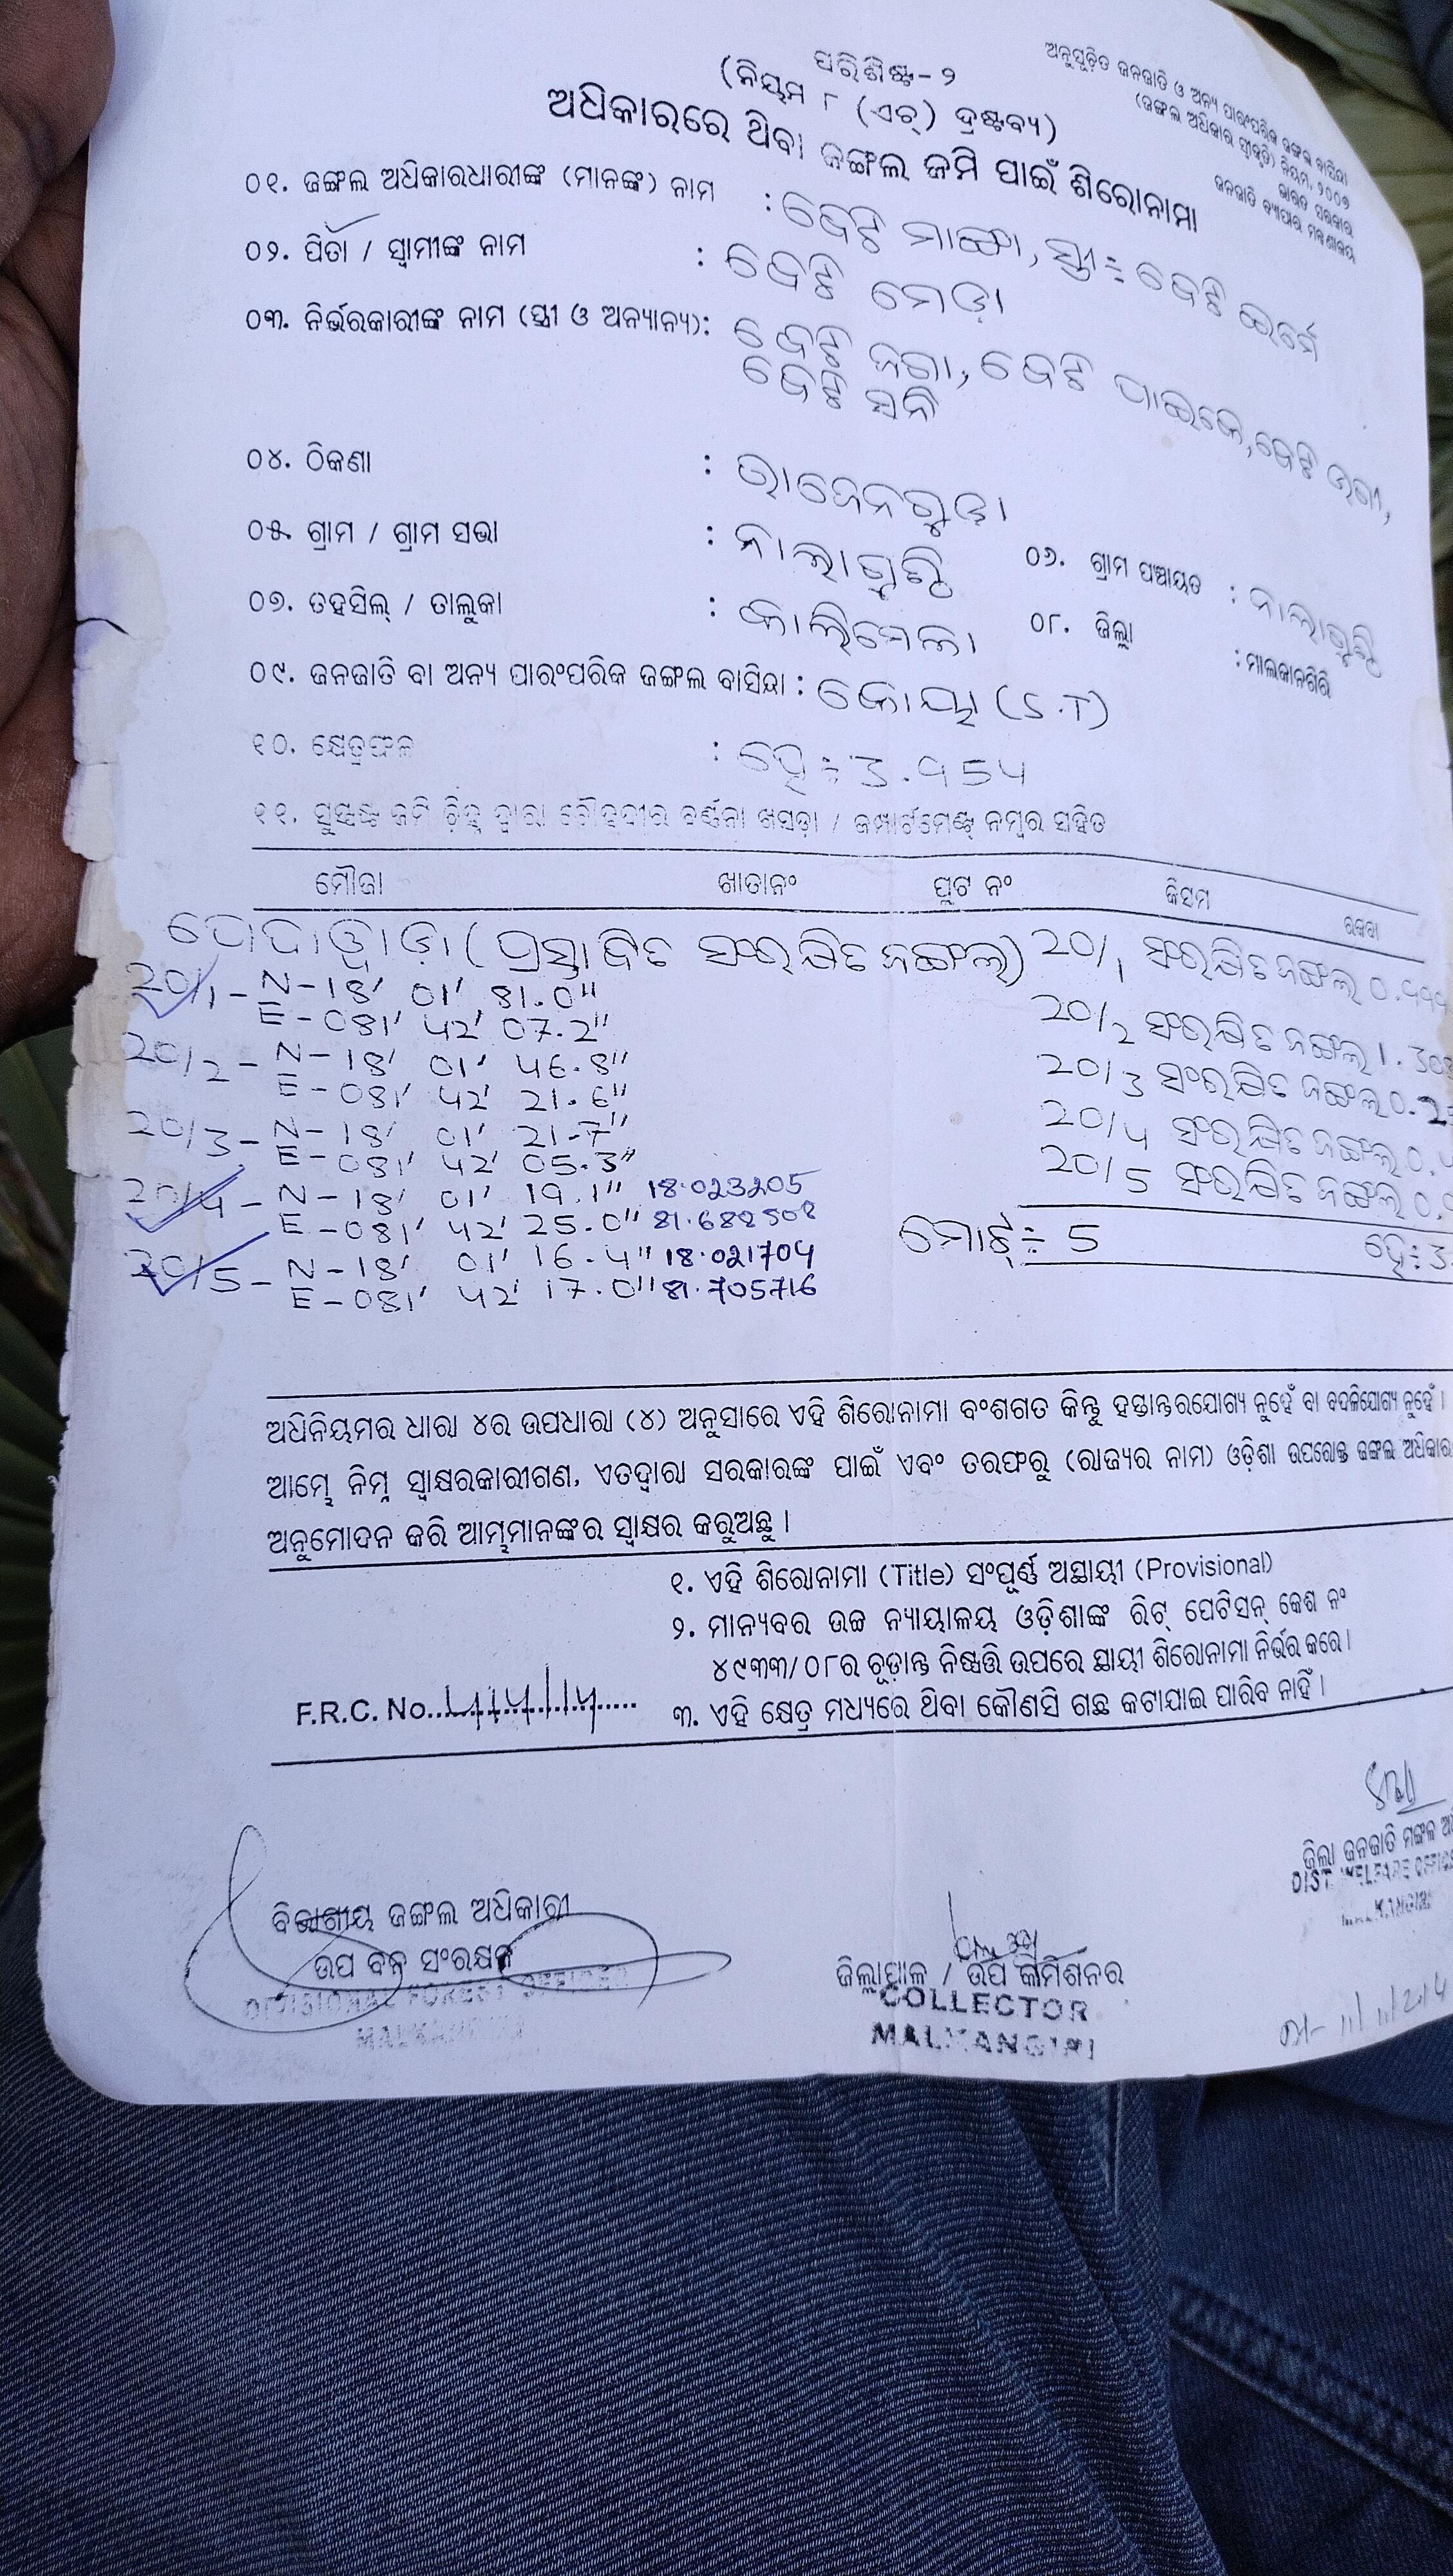 ଅନୁସୂଚିତ ଜନଜାତି ଓ ଅନ୍ୟ ପାରଂପରିକ ଜଙ୍ଗଲ ବାସିନ୍ଦା
(ଜଙ୍ଗଲ ଅଧିକାର ସ୍ୱୀକୃତି) ନିୟମ, ୨୦୦୭
ଭାରତ ସରକାର
ଜନଜାତି ବ୍ୟାପାର ମନ୍ତ୍ରଣାଳୟ
ପରିଶିଷ୍ଟ - ୨
(ନିୟମ ୮ (ଏଚ୍) ଦ୍ରଷ୍ଟବ୍ୟ)
ଅଧିକାରରେ ଥିବା ଜଙ୍ଗଲ ଜମି ପାଇଁ ଶିରୋନାମା
୦୧. ଜଙ୍ଗଲ ଅଧିକାରଧାରୀଙ୍କ (ମାନଙ୍କ) ନାମ : ବେଟି ମାଙ୍ଗା, ସ୍ତ୍ରୀ ÷ ବେଟି
୦୨. ପିତା / ସ୍ୱାମୀଙ୍କ ନାମ : ବେଟି
୦୩. ନିର୍ଭରକାରୀଙ୍କ ନାମ (ସ୍ତ୍ରୀ ଓ ଅନ୍ୟାନ୍ୟ): ବେଟି ଜଗା, ବେଟି ବେଟି
ବେଟି
୦୪. ଠିକଣା : ରାଜେନଗୁଡ଼ା
୦୫. ଗ୍ରାମ / ଗ୍ରାମ ସଭା : ନାଲାଗୁଣ୍ଠି ୦୬. ଗ୍ରାମ ପଞ୍ଚାୟତ : ନାଲାଗୁଣ୍ଠି
୦୭. ତହସିଲ୍ / ତାଲୁକା : କାଲିମେଲା ୦୮. ଜିଲ୍ଲା : ମାଲକାନଗିରି
୦୯. ଜନଜାତି ବା ଅନ୍ୟ ପାରଂପରିକ ଜଙ୍ଗଲ ବାସିନ୍ଦା : କୋୟା (S.T)
୧୦. କ୍ଷେତ୍ରଫଳ : ହେ ÷ 3.954
୧୧. ସୁସ୍ପଷ୍ଟ ଜମି ଚିହ୍ନ ଦ୍ୱାରା ଚୌହଦ୍ଦୀର ବର୍ଣ୍ଣନା ଖସଡ଼ା / କମ୍ପାର୍ଟମେଣ୍ଟ ନମ୍ବର ସହିତ
ମୌଜା ଖାତାନଂ ପ୍ଲଟ ନଂ କିସମ ରକବା
(ପ୍ରସ୍ତାବିତ ସଂରକ୍ଷିତ ଜଙ୍ଗଲ) 20/1 ସଂରକ୍ଷିତ ଜଙ୍ଗଲ
20/1 - N - 18' 01' 81.0"
E - 081' 42' 07.2" 20/2 ସଂରକ୍ଷିତ ଜଙ୍ଗଲ
20/2 - N - 18' 01' 46.8"
E - 081' 42' 21.6" 20/3 ସଂରକ୍ଷିତ ଜଙ୍ଗଲ
20/3 - N - 18' 01' 21.7"
E - 081' 42' 05.3" 20/4 ସଂରକ୍ଷିତ ଜଙ୍ଗଲ
20/4 - N - 18' 01' 19.1" 18.023205 20/5 ସଂରକ୍ଷିତ ଜଙ୍ଗଲ
E - 081' 42' 25.0"
20/5 - N - 18' 01' 16.4" 18.021704 ମୋଟ୍ ÷ 5 ହେ ÷ 3.
E - 081' 42' 17.0" 81.705716
ଅଧିନିୟମର ଧାରା ୪ର ଉପଧାରା (୪) ଅନୁସାରେ ଏହି ଶିରୋନାମା ବଂଶଗତ କିନ୍ତୁ ହସ୍ତାନ୍ତରଯୋଗ୍ୟ ନୁହେଁ ବା ବଦଳିଯୋଗ୍ୟ ନୁହେଁ ।
ଆମ୍ଭେ ନିମ୍ନ ସ୍ୱାକ୍ଷରକାରୀଗଣ, ଏତଦ୍ୱାରା ସରକାରଙ୍କ ପାଇଁ ଏବଂ ତରଫରୁ (ରାଜ୍ୟର ନାମ) ଓଡ଼ିଶା ଉପରୋକ୍ତ ଜଙ୍ଗଲ ଅଧିକାର
ଅନୁମୋଦନ କରି ଆମ୍ଭମାନଙ୍କର ସ୍ୱାକ୍ଷର କରୁଅଛୁ ।
୧. ଏହି ଶିରୋନାମା (Title) ସଂପୂର୍ଣ୍ଣ ଅସ୍ଥାୟୀ (Provisional)
୨. ମାନ୍ୟବର ଉଚ୍ଚ ନ୍ୟାୟାଳୟ ଓଡ଼ିଶାଙ୍କ ରିଟ୍ ପେଟିସନ୍ କେଶ ନଂ
୪୯୩୩/୦୮ର ଚୂଡ଼ାନ୍ତ ନିଷ୍ପତ୍ତି ଉପରେ ସ୍ଥାୟୀ ଶିରୋନାମା ନିର୍ଭର କରେ ।
F.R.C. No. ୩. ଏହି କ୍ଷେତ୍ର ମଧ୍ୟରେ ଥିବା କୌଣସି ଗଛ କଟାଯାଇ ପାରିବ ନାହିଁ ।
ଜିଲ୍ଲା ଜନଜାତି ମଙ୍ଗଳ
DIST. WELFARE OFFICER
ବିଭାଗୀୟ ଜଙ୍ଗଲ ଅଧିକାରୀ
ଉପ ବନ ସଂରକ୍ଷକ
DIVISIONAL FOREST OFFICER
MALKANGIRI
ଜିଲ୍ଲାପାଳ / ଉପ କମିଶନର
COLLECTOR
MALKANGIRI